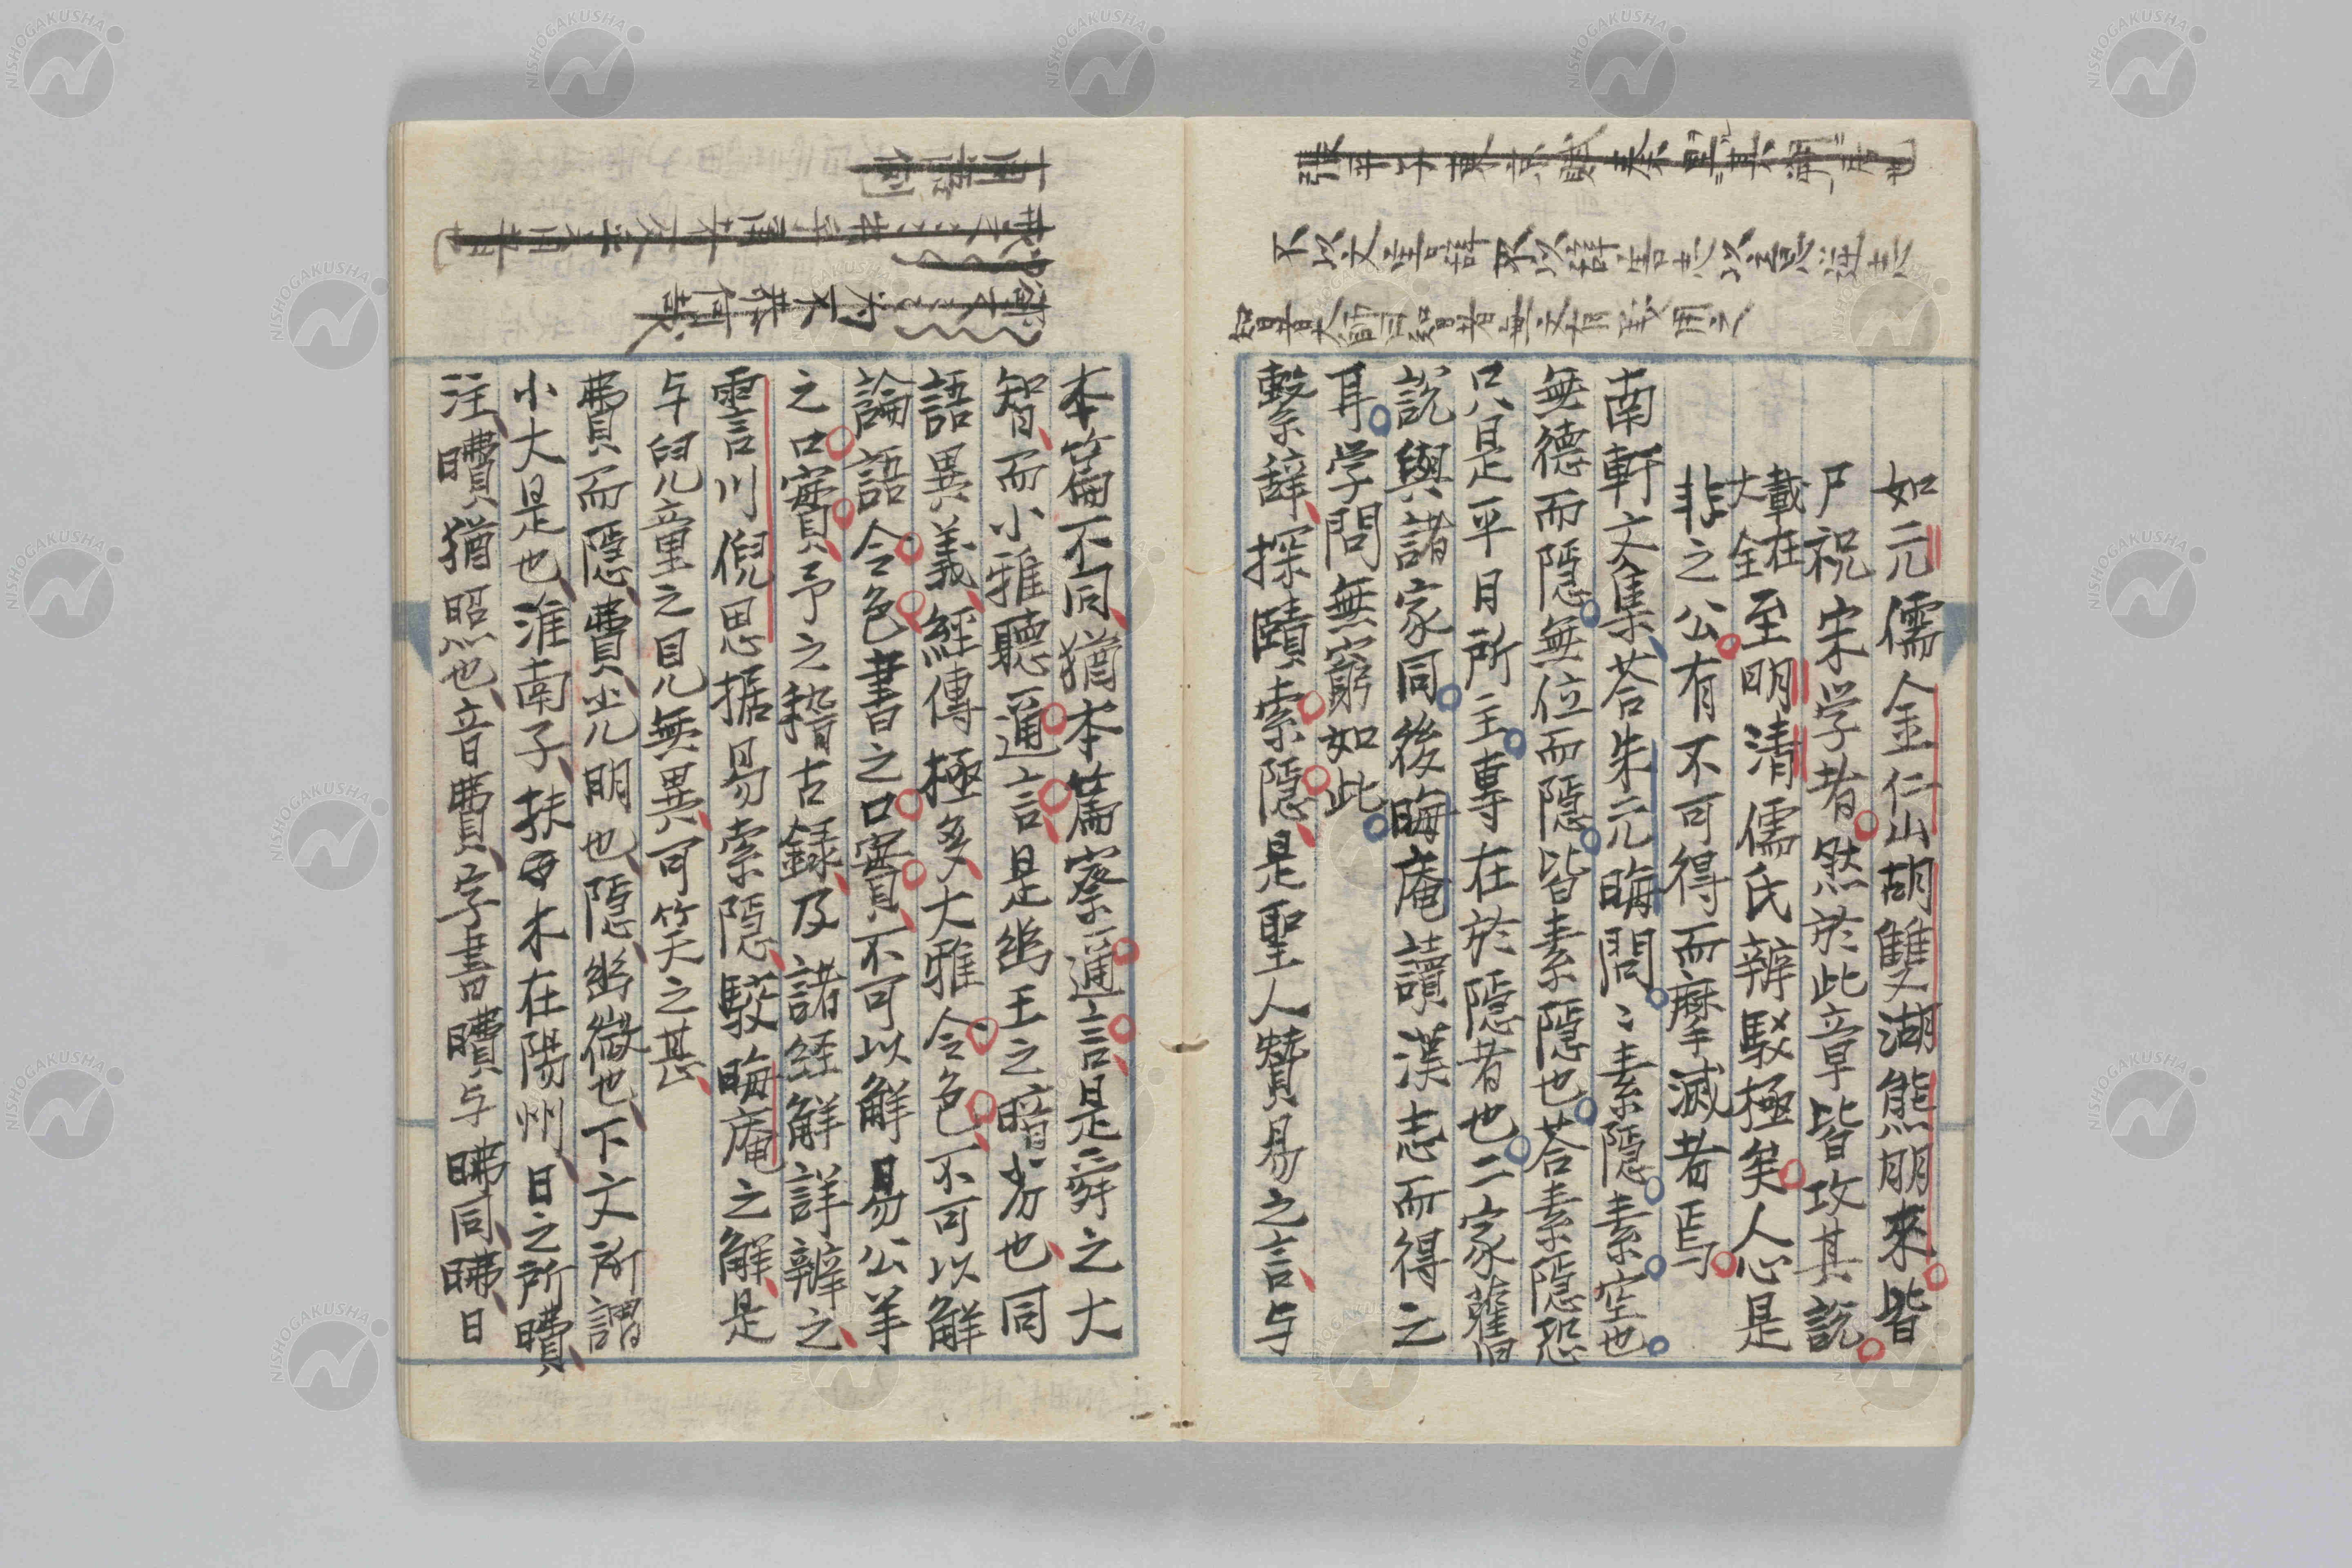 不以文害辭不以辭害志以意逆志
如元儒金仁山胡雙湖熊朋來皆
尸祝宋学者然於此章皆攻其説
載在大全至明清儒氏辨駁極矣人心是
非之公有不可得而摩滅者焉
南軒文集荅朱元晦問〻素隠素空也
無德而隠無位而隠皆素隠也荅素隠恐
只是平日所主專在於隠者也二家舊
説與諸家同後晦庵讀漢志而得之
耳学問無窮如此
繫辭探賾索隠是聖人贊易之言与
本篇不同猶本篇察邇言是舜之大
智而小雅聽邇言是幽王之暗劣也同
語異義經傳極多大雅令色不可以解
論語令色書之口實不可以解易公羊
之口實予之稽古録及諸経解詳辨之
霅川倪思据易索隠駁晦庵之解是
与兒童之見無異可笑之甚
費而隠費光明也隠幽微也下文所謂
小大是也淮南子扶木在陽州日之所曊
注曊猶照也音費字書曊与昲同昲日
NISHOGAKUSHA